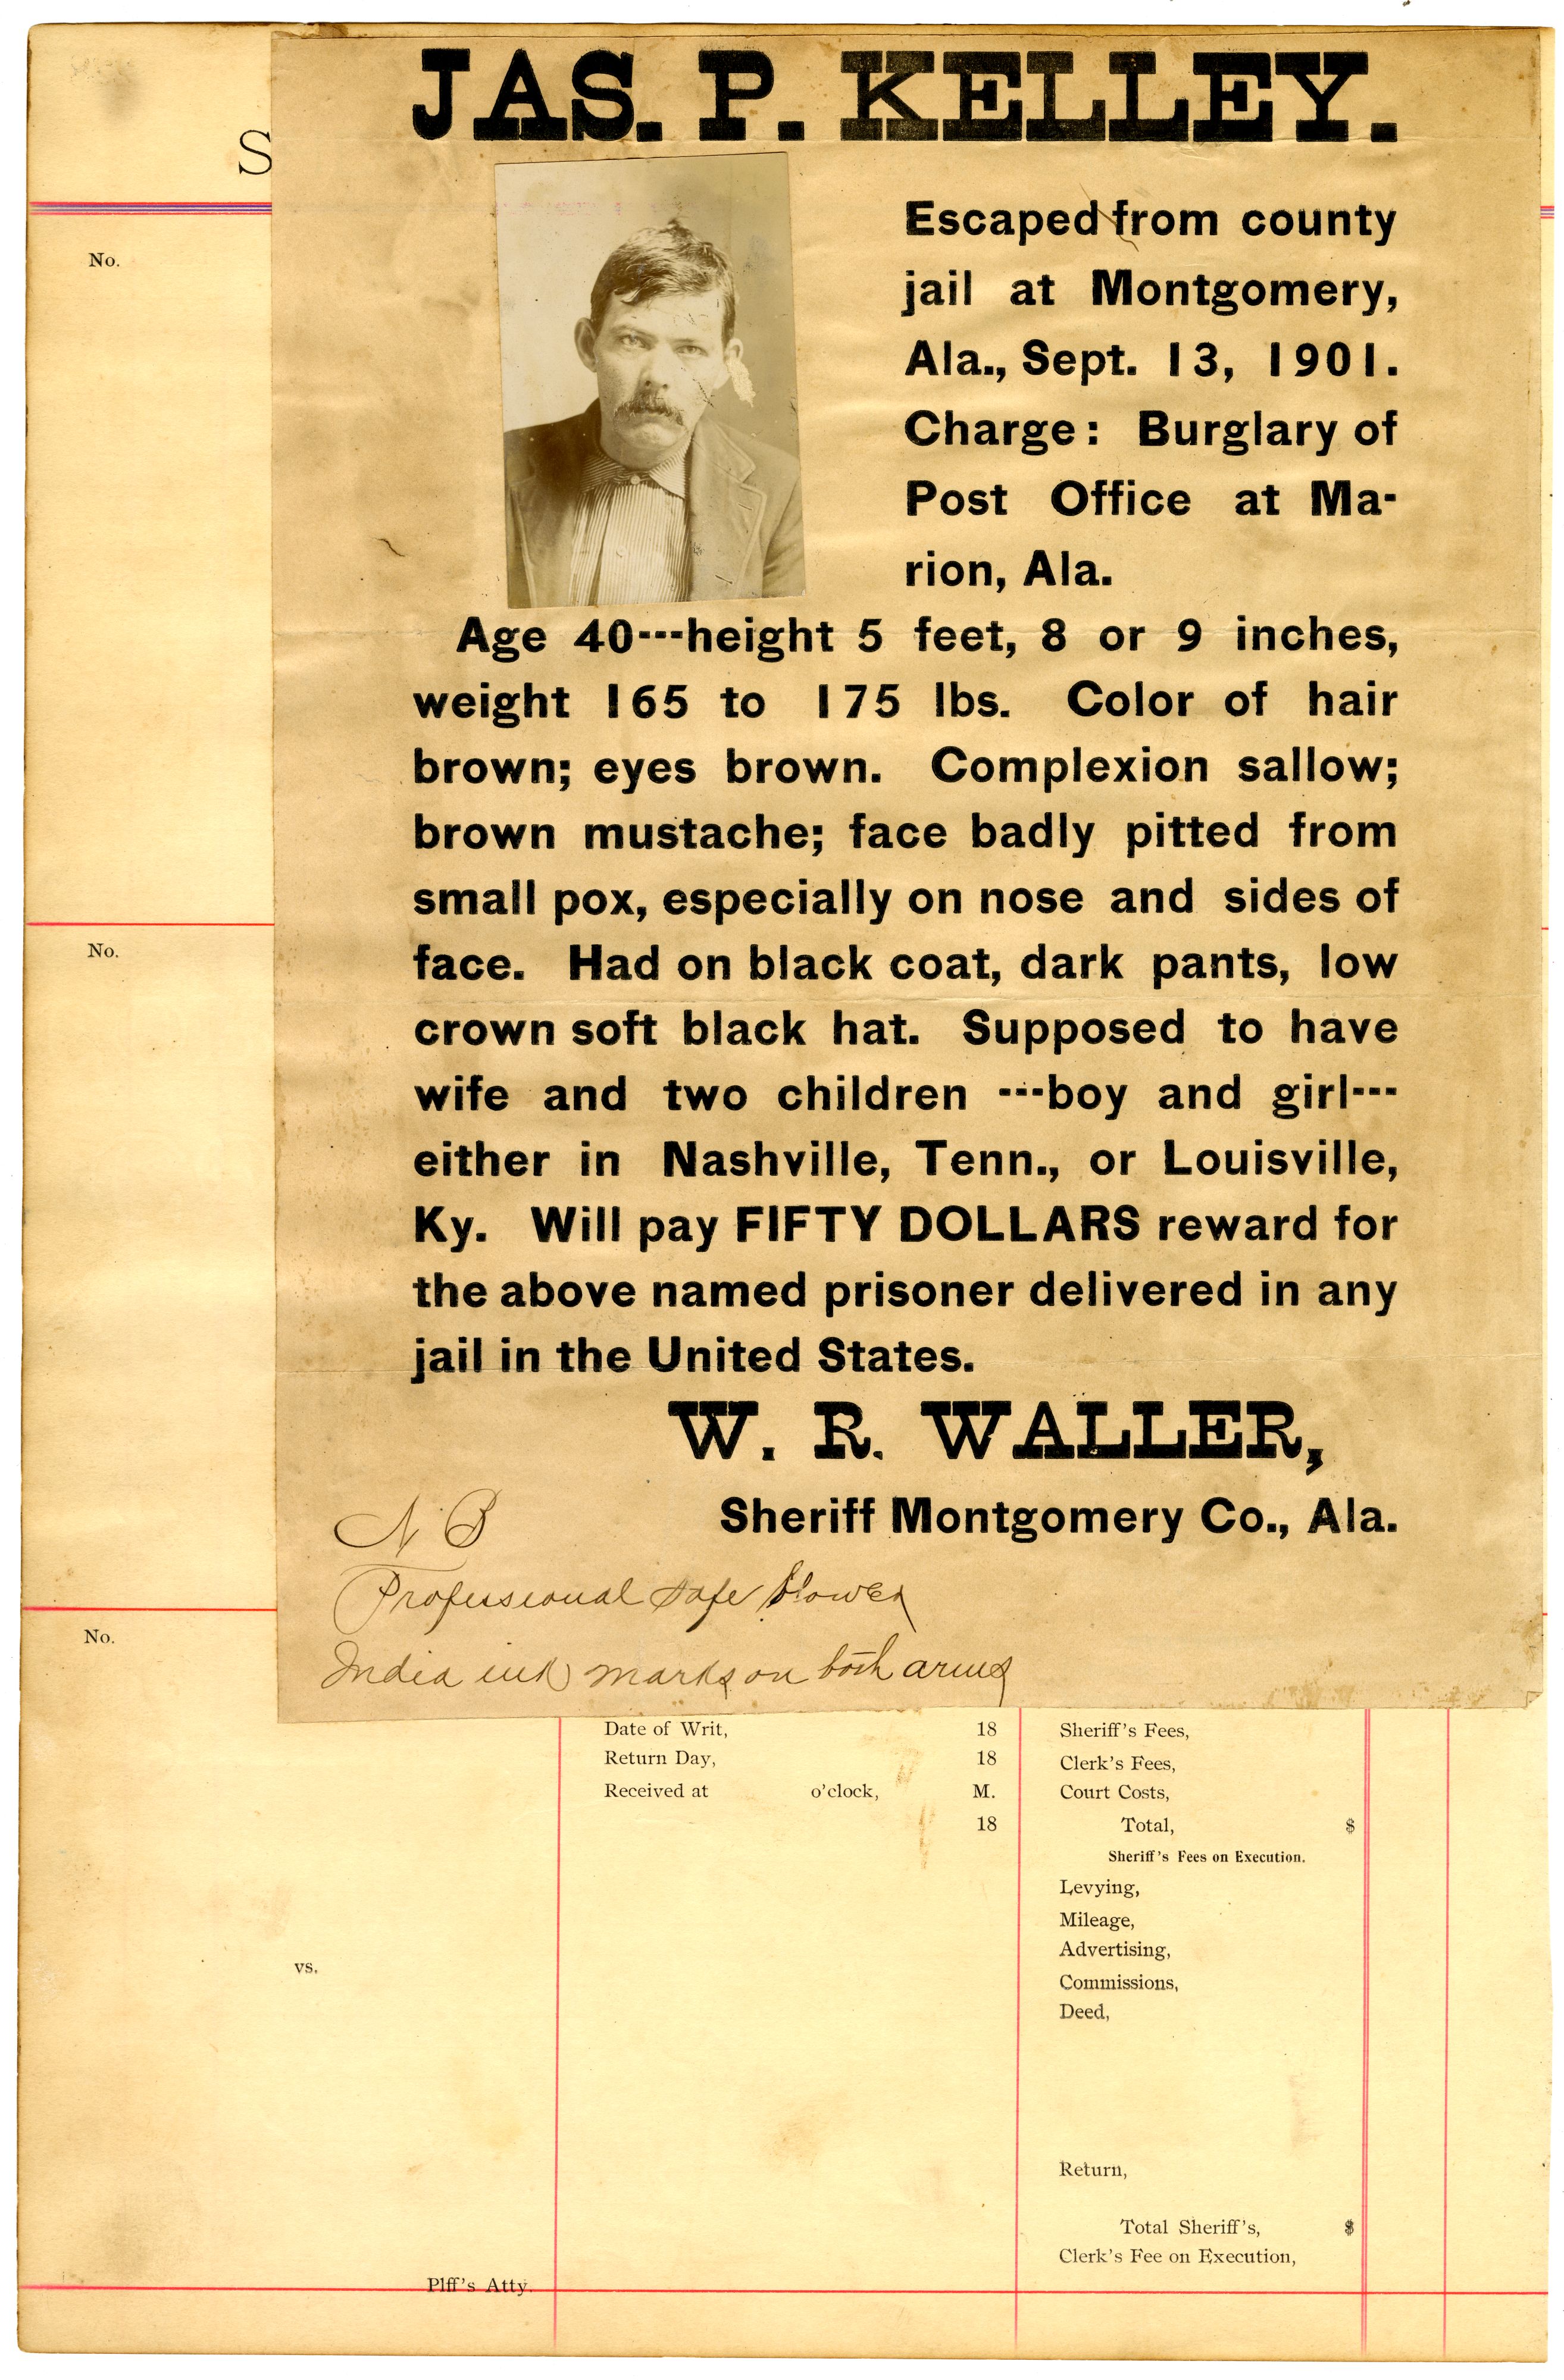 JAS. P. KELLEY.
S
No.
Escaped from county
jail at Montgomery,
Ala., Sept. 13, 1901.
Charge: Burglary of
Post Office at Ma-
rion, Ala.
Age 40---height 5 feet, 8 or 9 inches,
weight 165 to 175 lbs. Color of hair
brown; eyes brown. Complexion sallow;
brown mustache; face badly pitted from
small pox, especially on nose and sides of
No.
face. Had on black coat, dark pants, low
crown soft black hat. Supposed to have
wife and two children ---boy and girl---
either in Nashville, Tenn., or Louisville,
Ky. Will pay FIFTY DOLLARS reward for
the above named prisoner delivered in any
jail in the United States.
W. R. WALLER,
Sheriff Montgomery Co., Ala.
N B
Professional safe blower
No.
India ink marks on both arms
Date of Writ, 18
Return Day, 18
Received at o'clock, M.
18
Sheriff's Fees,
Clerk's Fees,
Court Costs,
Total, $
Sheriff's Fees on Execution.
Levying,
Mileage,
Advertising,
Commissions,
Deed,
vs.
Return,
Total Sheriff's, $
Clerk's Fee on Execution,
Plff's Atty.